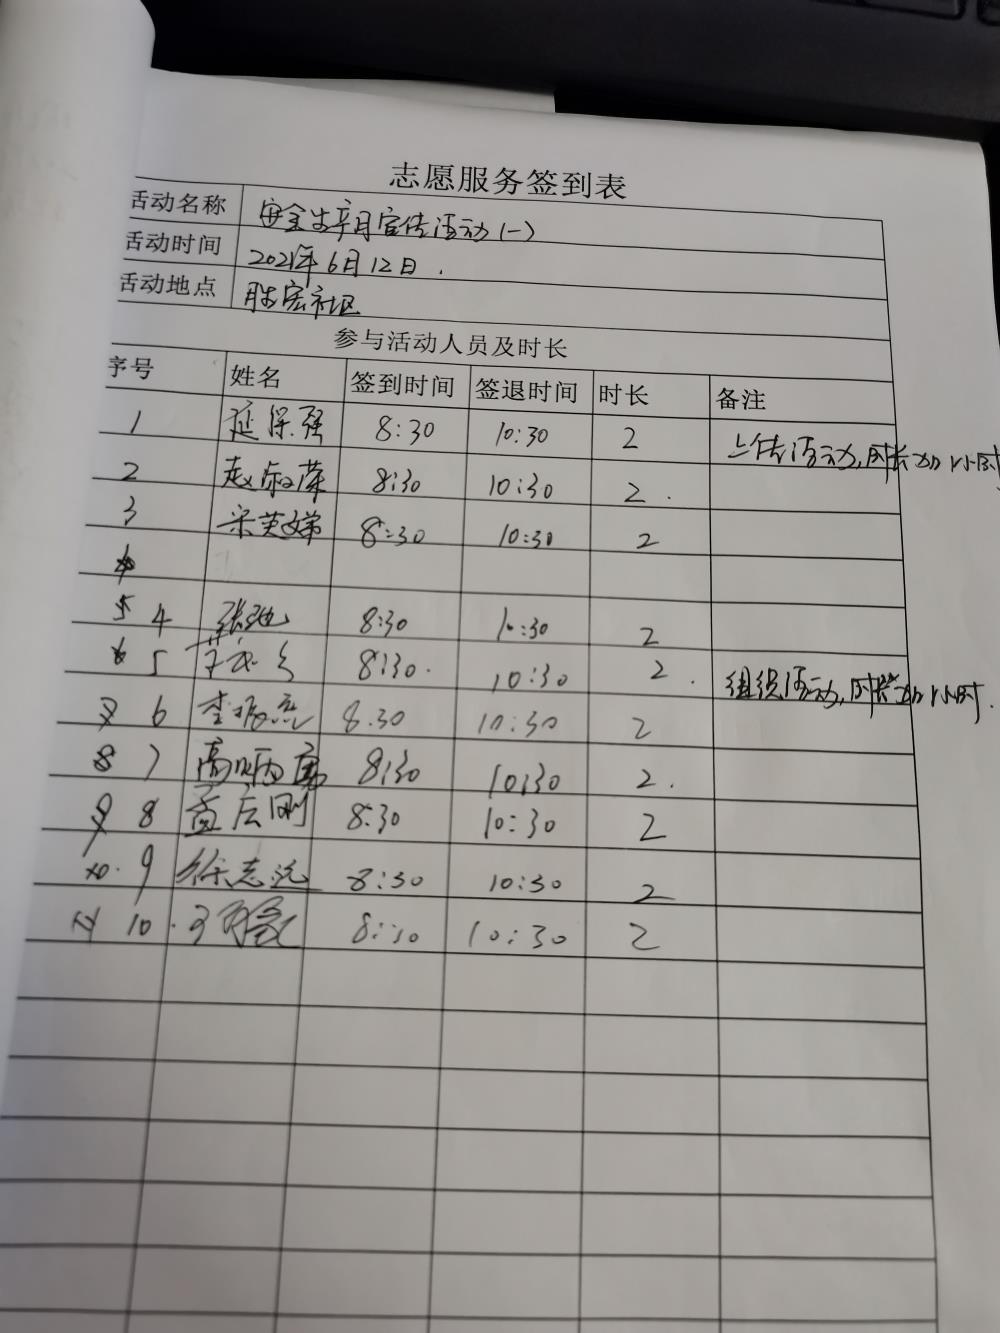 志愿服务签到表
活动名称 安全生产月宣传活动(一)
活动时间 2021年6月12日.
活动地点 胜宏社区
参与活动人员及时长
序号 姓名 签到时间 签退时间 时长 备注
1 延保强 8:30 10:30 2 上传活动,时长加1小时
2 赵淑荣 8:30 10:30 2.
3 宋英娣 8:30 10:30 2
4
5 4 张弛 8:30 10:30 2
6 5 8:30. 10:30 2. 组织活动,时长加1小时.
7 6 李振亮 8.30 10:30 2
8 7 高炳寓 8:30 10:30 2.
9 8 孟庆刚 8:30 10:30 2
10. 9 徐志远 8:30 10:30 2
11 10. 8:30 10:30 2